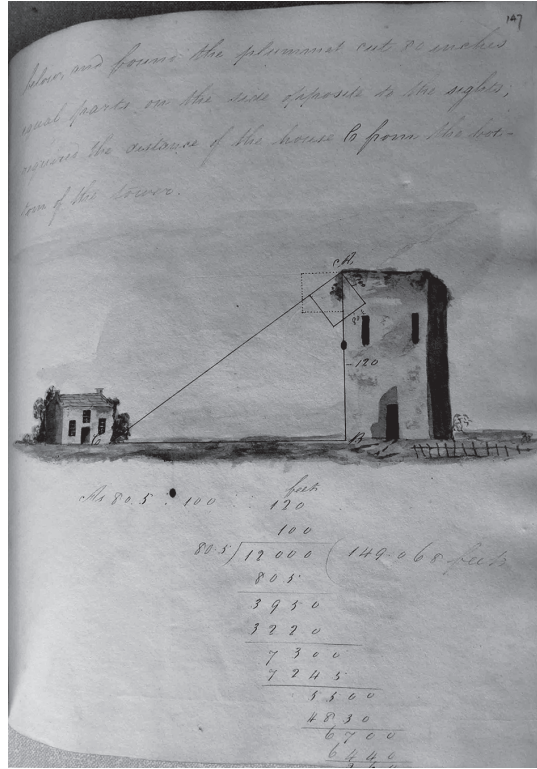 147
below, and found the plummet cut 80 inches
equal parts on the side opposite to the sights,
required the distance of the house C from the bot-
tom of the tower.
A
120
B
C
feet
As 80.5 : 100 120
100
80.5) 12000 (149.068 feet
805
3950
3220
7300
7245
5500
4830
6700
6440
260